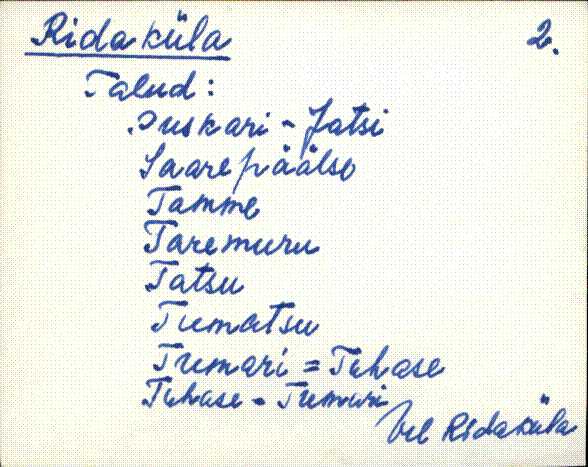 Ridaküla 2.
Talud:
Puskari - Jatsi
Saarepäälse
Tamme
Taremuru
Tatsu
Tumatsu
Tumari = Tuhase
Tuhase = Tumari
Vil Ridaküla